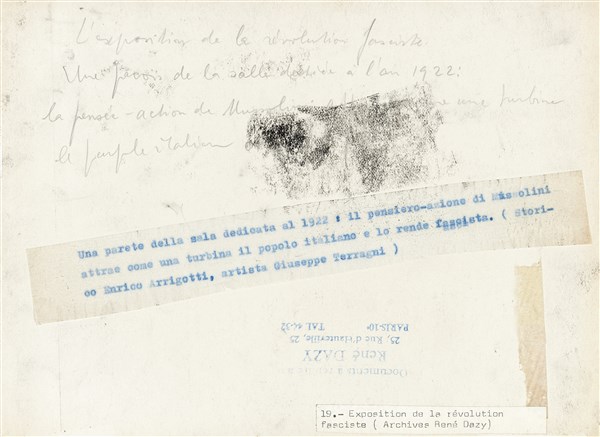 L'exposition de la révolution fasciste.
Une paroi de la salle dédiée à l'an 1922:
la pensée-action de Mussolini une turbine
le peuple italien
Una parete della sala dedicata al 1922 : il pensiero-azione di Mussolini
attrae come una turbina il popolo italiano e lo rende fascista. ( Stori-
co Enrico Arrigotti, artista Giuseppe Terragni )
Document
René DAZY
25, Rue d'Hauteville, 25
PARIS-10e TAI. 44-32
19.- Exposition de la révolution
fasciste ( Archives René Dazy)